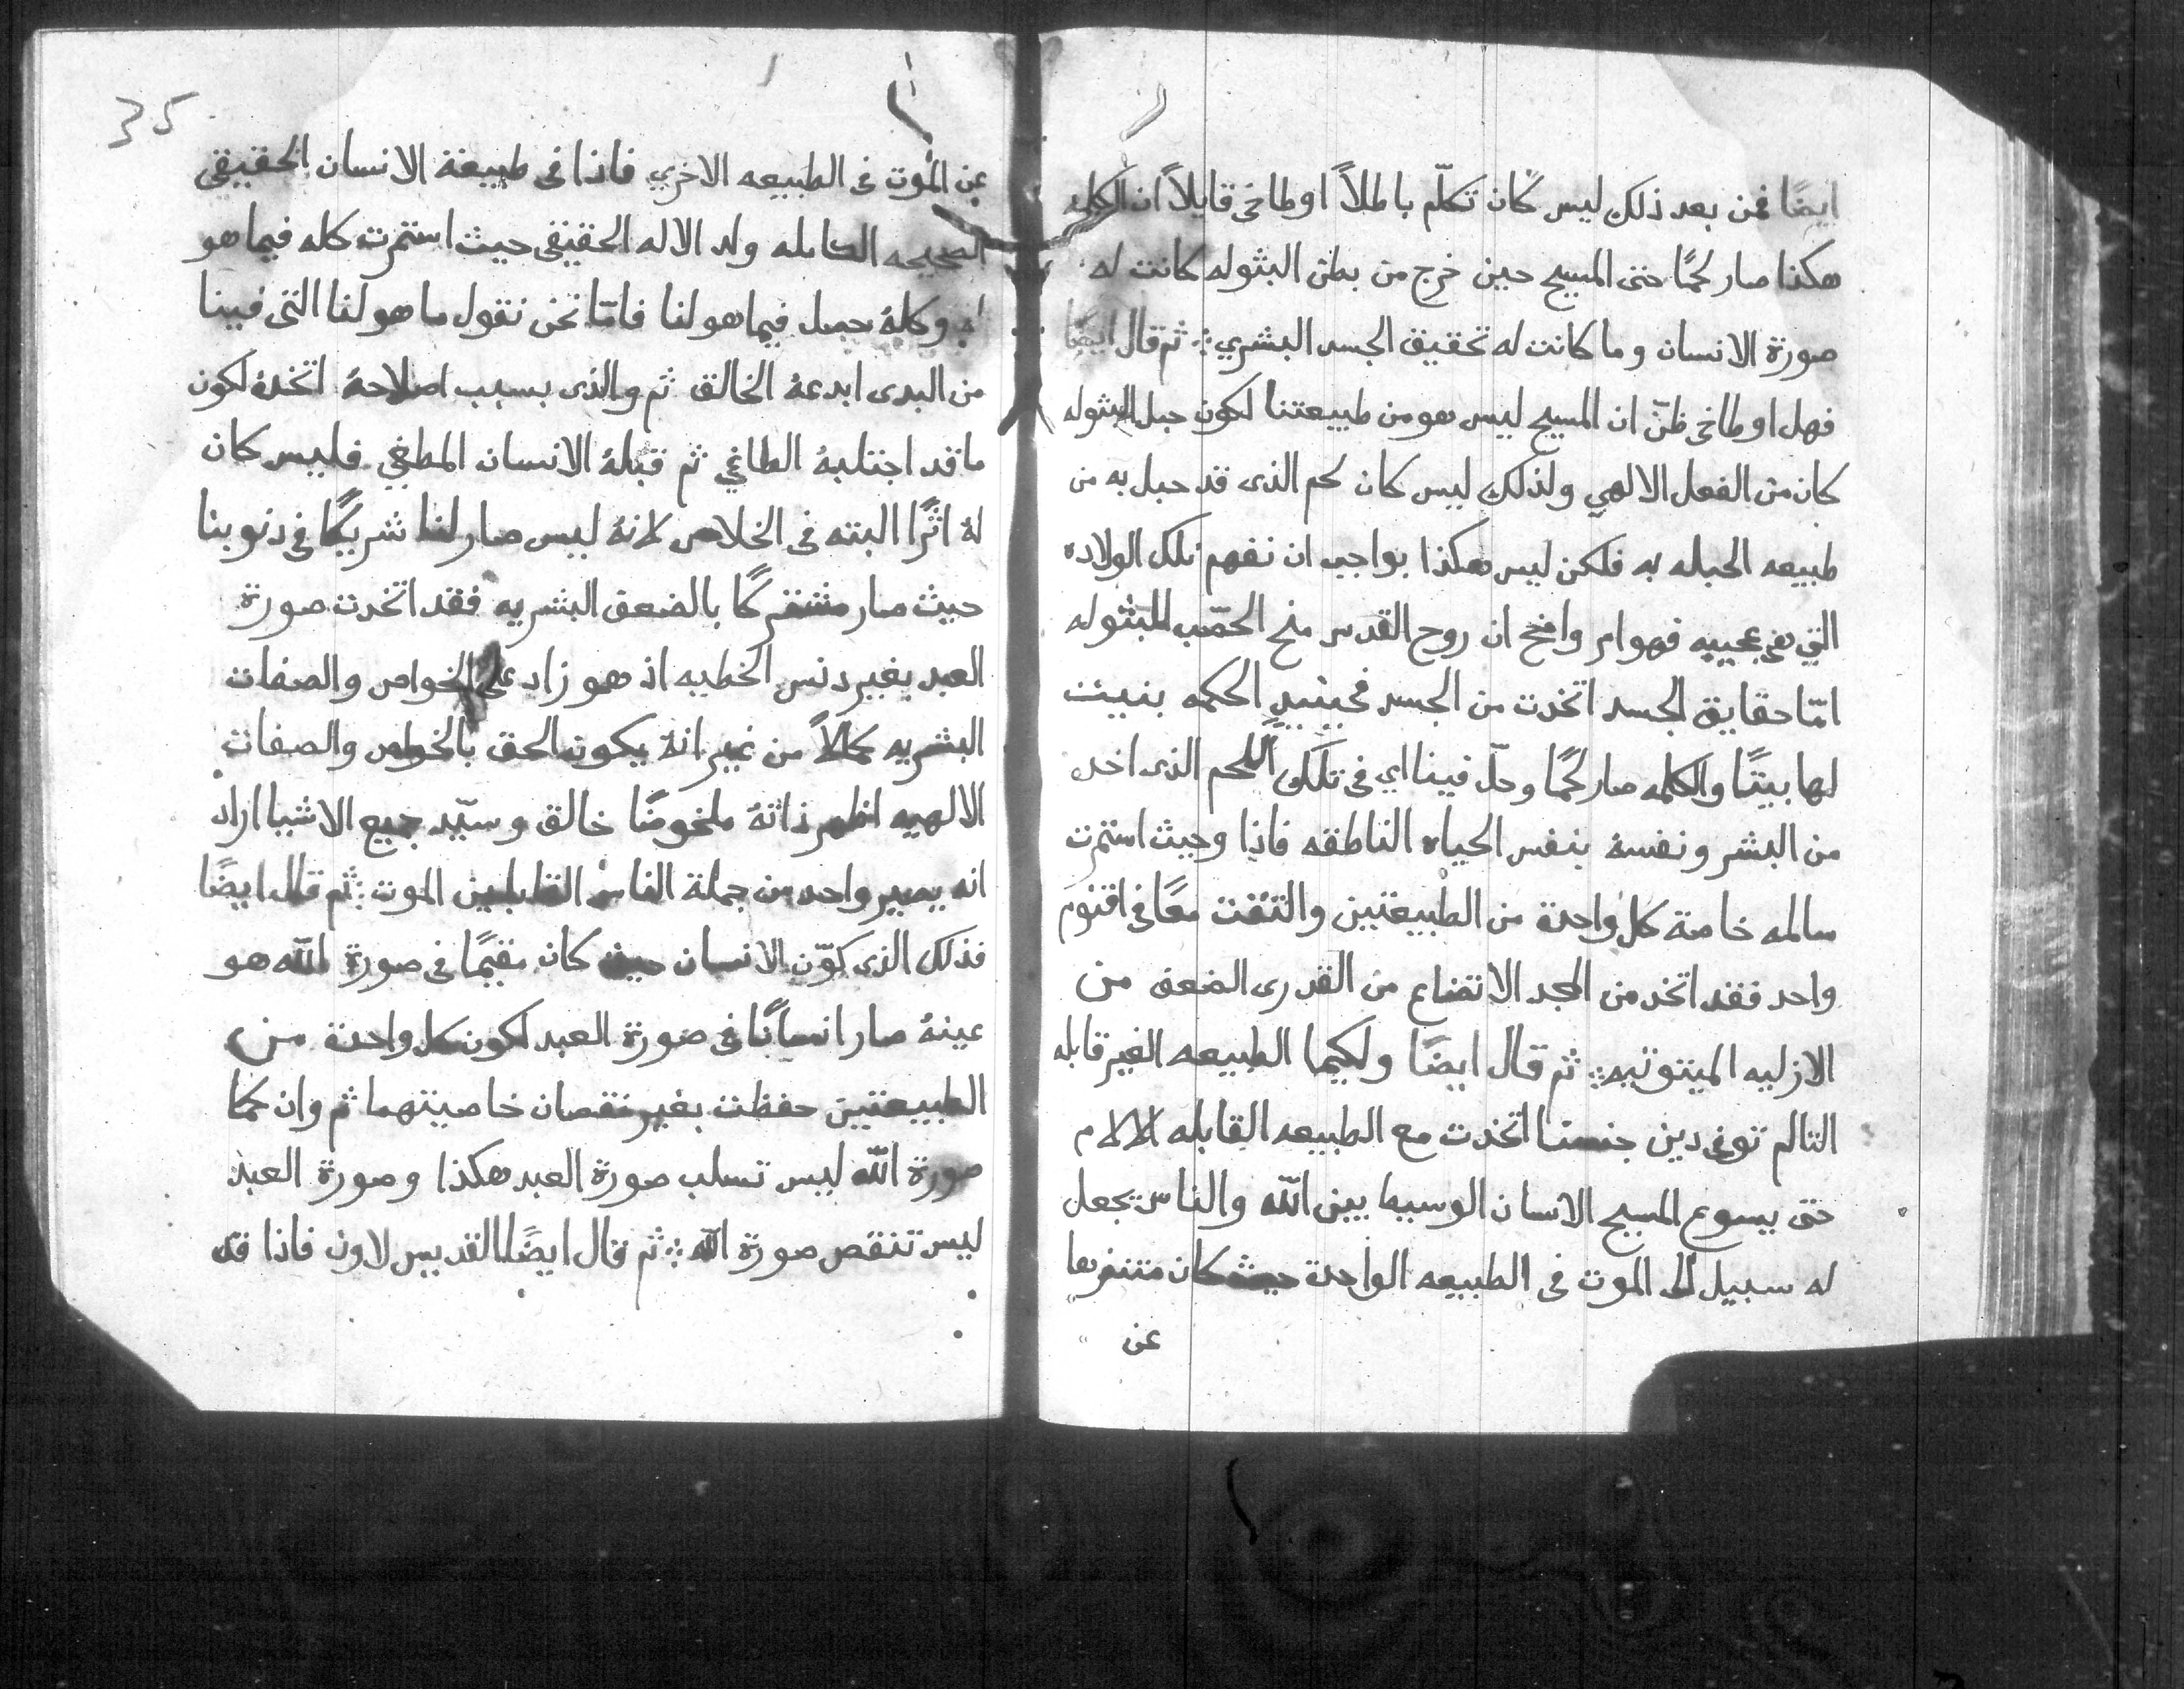 ايضًا فمن بعد ذلك ليس كان تكلّم باطلاً اوطاخى قايلاً ان الكلمه
هكذا صار لحمًا حتى المسيح حين خرج من بطن البتوله كانت له
صورة الانسان وما كانت له تحقيق الجسد البشري ثم قال ايضًا
فهل اوطاخى ظنّ ان المسيح ليس هو من طبيعتنا لكون حبل البتوله
كان من الفعل الالهي ولذلك ليس كان لحم الذى قد حبل به من
طبيعه الحبله به فلكن ليس هكذا بواجب ان نفهم تلك الولاده
التي هي عجيبه فهو امر واضح ان روح القدس منح الخصب للبتوله
امّا حقايق الجسد اتخدت من الجسد فحينيدٍ الحكمه بنيت
لها بيتًا والكلمه صار لحمًا وحلّ فينا اي فى تلك اللحم الذى اخد
من البشر ونفسهُ بنفس الحياه الناطقه فاذا وحيث استمرت
سالمه خاصة كل واحدة من الطبيعتين والتقت معًا فى اقنوم
واحد فقد اتخد من المجد الاتضاع من القدرى الضعف من
الازليه الميتوتيه ثم قال ايضًا ولكيما الطبيعه الغير قابله
التالم توفى دين جنسنا اتخدت مع الطبيعه القابله الالام
حتى يسوع المسيح الانسان الوسيط بين الله والناس تجعل
له سبيل الى الموت فى الطبيعه الواحدة حيث كان متنزها
عن
35
عن الموت فى الطبيعه الاخري فاذا فى طبيعة الانسان الحقيقى
الصحيحه الكامله ولد الاله الحقيقى حيث استمرت كله فيما هو
له وكلهُ جميل فيما هو لنا فامّا نحن نقول ما هو لنا التى فينا
من البدى ابدعهُ الخالق ثم والذى بسبب اصلاحهُ اتخدهُ لكون
ما قد اجتلبهُ الطاغي ثم قبلهُ الانسان المطغي فليس كان
لهُ اثرًا البته فى الخلاص لانهُ ليس صار لنا شريكًا فى دنوبنا
حيث صار مشتركًا بالضعف البشريه فقد اتخدت صورة
العبد بغير دنس الخطيه اذ هو زاد على الخواص والصفات
البشريه كمالاً من غير انهُ يكون الحق بالخواص والصفات
الالهيه اظهر ذاتهُ ملحوضًا خالق وسيّد جميع الاشيا اراد
انه يصير واحد من جملة الناس القابلين الموت ثم قال ايضًا
فذلك الذى كوّن الانسان حيث كان مقيمًا فى صورة الله هو
عينهُ صار انسانًا فى صورة العبد لكون كل واحدة من
الطبيعتين حفظت بغير نقصان خاصيتهما ثم وان كما
صورة الله ليس تسلب صورة العبد هكذا وصورة العبد
ليس تنقص صورة الله ثم قال ايضًا القديس لاون فاذا قد